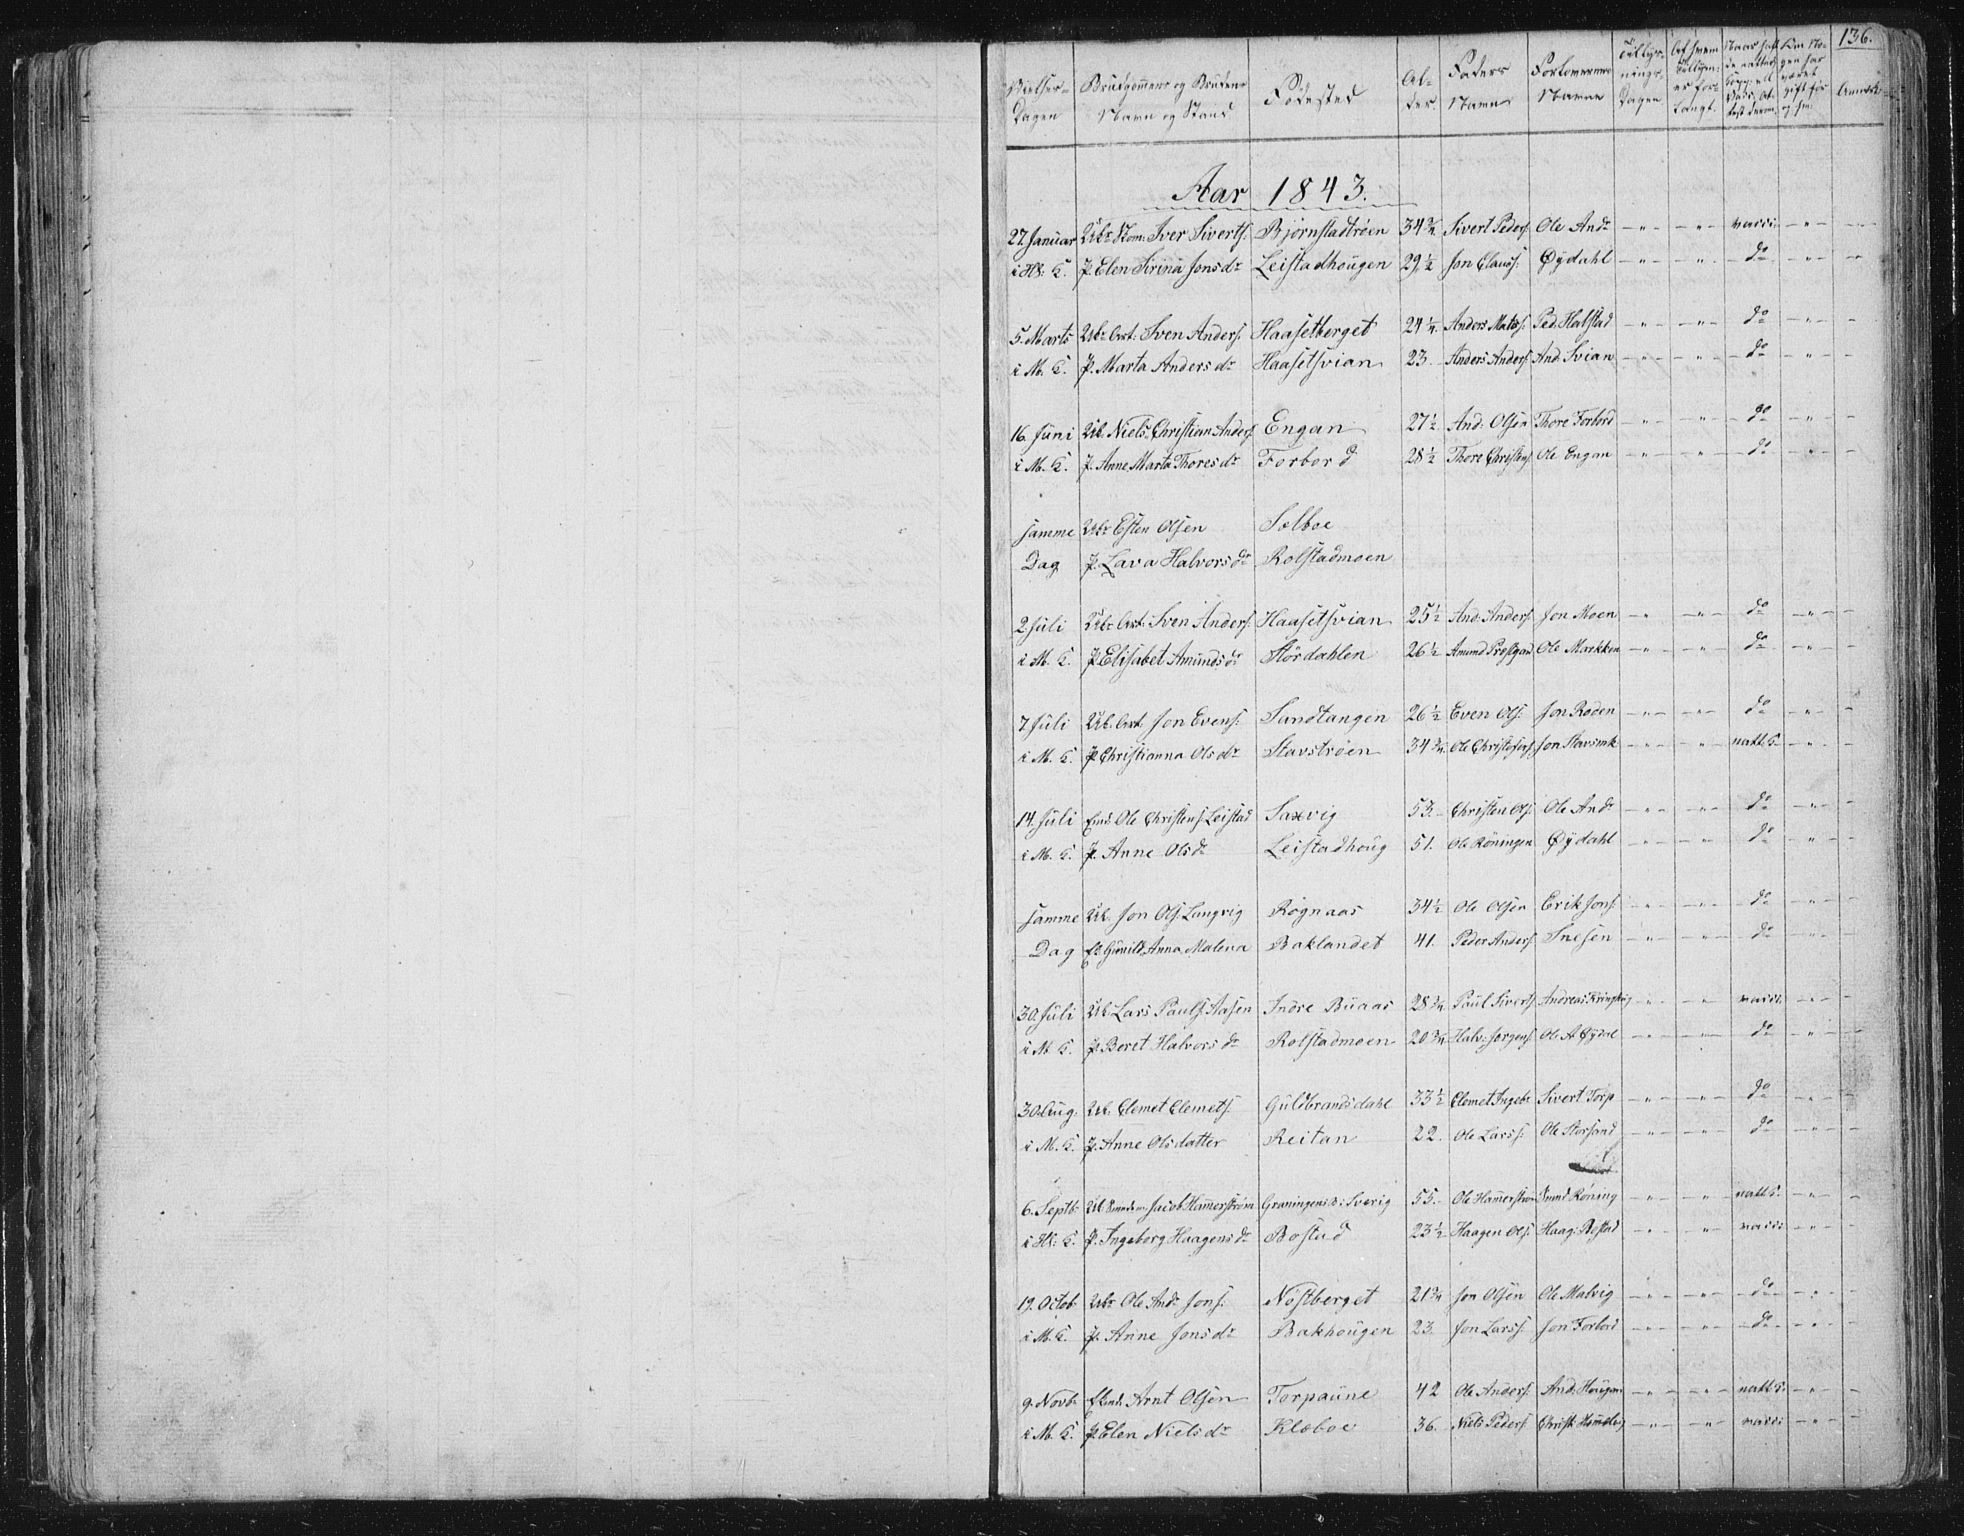 136.
Vielses- Dagen | Brudgommens og Brudens Navn og Stand | Fødested | Al- der | Faders Navn | Forlovernes Navne | Tillys- nings- Dagen | Af hvem Tillysn: er for- langt.
Aar 1843.
27. Januar Ubr Skom: Iver Siverts. Bjørnstadtrøen 34 3/4 Sivert Peders. Ole Andr — " — — " — vacci: — " —
i Hk: K. P. Elen Sirina Jonsdr Leistadhougen 29 1/2 Jon Claus. Øydahl — " — — " — do — " —
5. Marts Ubr Art: Sven Anders. Haasetberget 24 1/4 Anders Mats. Ped. Halstad — " — — " — do — " —
i M. K. P. Marta Andersdr Haasetsvian 23. Anders Anders. And. Svian — " — — " — do — " —
16. Juni Uk. Niels Christian Anders. Engan 27 1/2 And. Olsen Thore Forbord — " — — " — do — " —
i M. K. P. Anne Marta Thoresdr Forbord 28 1/2 Thore Christens. Ole Engan — " — — " — do — " —
samme Ubr Esten Olsen Selboe
Dag P. Lava Halvorsdr Rolstadmoen
2. Juli Ubr Art: Sven Anders. Haasetsvian 25 1/2 And. Anders. Jon Moen — " — — " — do — " —
i M. K. P. Elisabet Amundsdr Størdahlen 26 1/2 Amund Ole Markken — " — — " — do — " —
7. Juli Uk. Art. Jon Evens. Sundtangen 26 1/2 Even Ols. Jon Roden — " — — " — do — " —
i M. K. P. Christianna Olsdr Stavstrøen 34 3/4 Ole Christofers. Jon — " — — " — natt: — " —
14. Juli Ole Christens. Leistad Saxvig 53. Christen Ols. Ole Andr — " — — " — do — " —
i M. K. P. Anne Olsdr Leistadhoug 51. Ole Røningen Øydahl — " — — " — do — " —
samme Uk. Jon Ols. Langvig Røgnaas 34 1/2 Ole Olsen Erik Jons. — " — — " — do — " —
Dag Ek. Gunild Anna Malena Baklandet 41. Peder Anders. Snesen — " — — " — do — " —
30. Juli Uk. Lars Pauls. Aasen Indre Buaas 28 3/4 Paul Siverts. Andreas — " — — " — vacci: — " —
i M. K. P. Beret Halvorsdr Rolstadmoen 20 3/4 Halv. Jørgens. Ole A Øydal — " — — " — do — " —
30. Aug. Uk. Clemet Clemets. Guldbrandsdahl 33 1/2 Clemet Ingebr Sivert Torp — " — — " — do — " —
i M. K. P. Anne Olsdatter Reitan 22. Ole Lars. Ole Storsand — " — — " — do — " —
6. Septb. Uk. Jacob Hamerstrøm Graningens B: Sverig 55. Ole Hamerstrøm Røning — " — — " — natt: — " —
i Hk: K. P. Ingeborg Haagensdr Bostad 23 1/2 Haagen Ols. Haag. Bostad — " — — " — vacci: — " —
19. Octob. Ubr Ole Andr Jons. Nøstberget 21 3/4 Jon Olsen Ole Malvig — " — — " — do — " —
i M. K. P. Anne Jonsdr Bakhougen 23. Jon Lars. Jon Forbord — " — — " — do — " —
9. Novbr Arnt Olsen Torpaune 42 Ole Anders. And. Hougan — " — — " — natt: — " —
i M. K. P. Elen Nielsdr Klæboe 36. Niels Peders. Christ. — " — — " — vacci: — " —